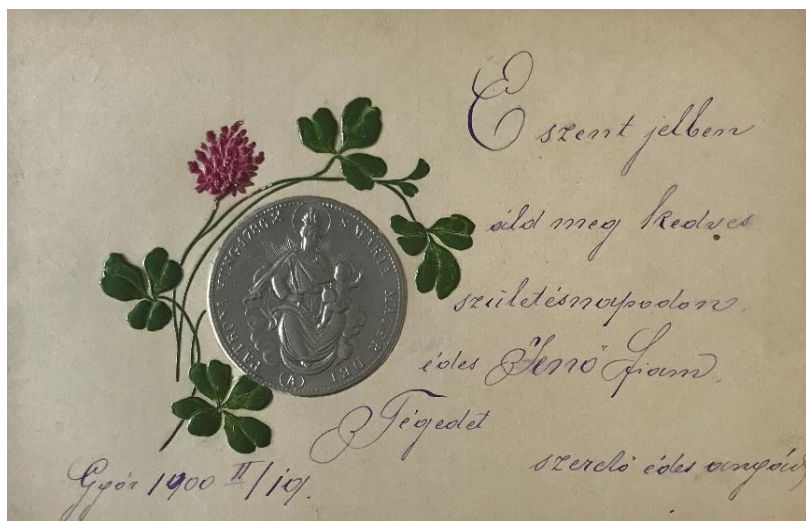 E szent jelben
áld meg kedves
születésnapodon.
édes "Jenő" fiam.
Tégedet
szerető édes anyád
Győr 1900 II/19.
S. MARIA MATER DEI
PATRONA HUNG. 1786.
(A)